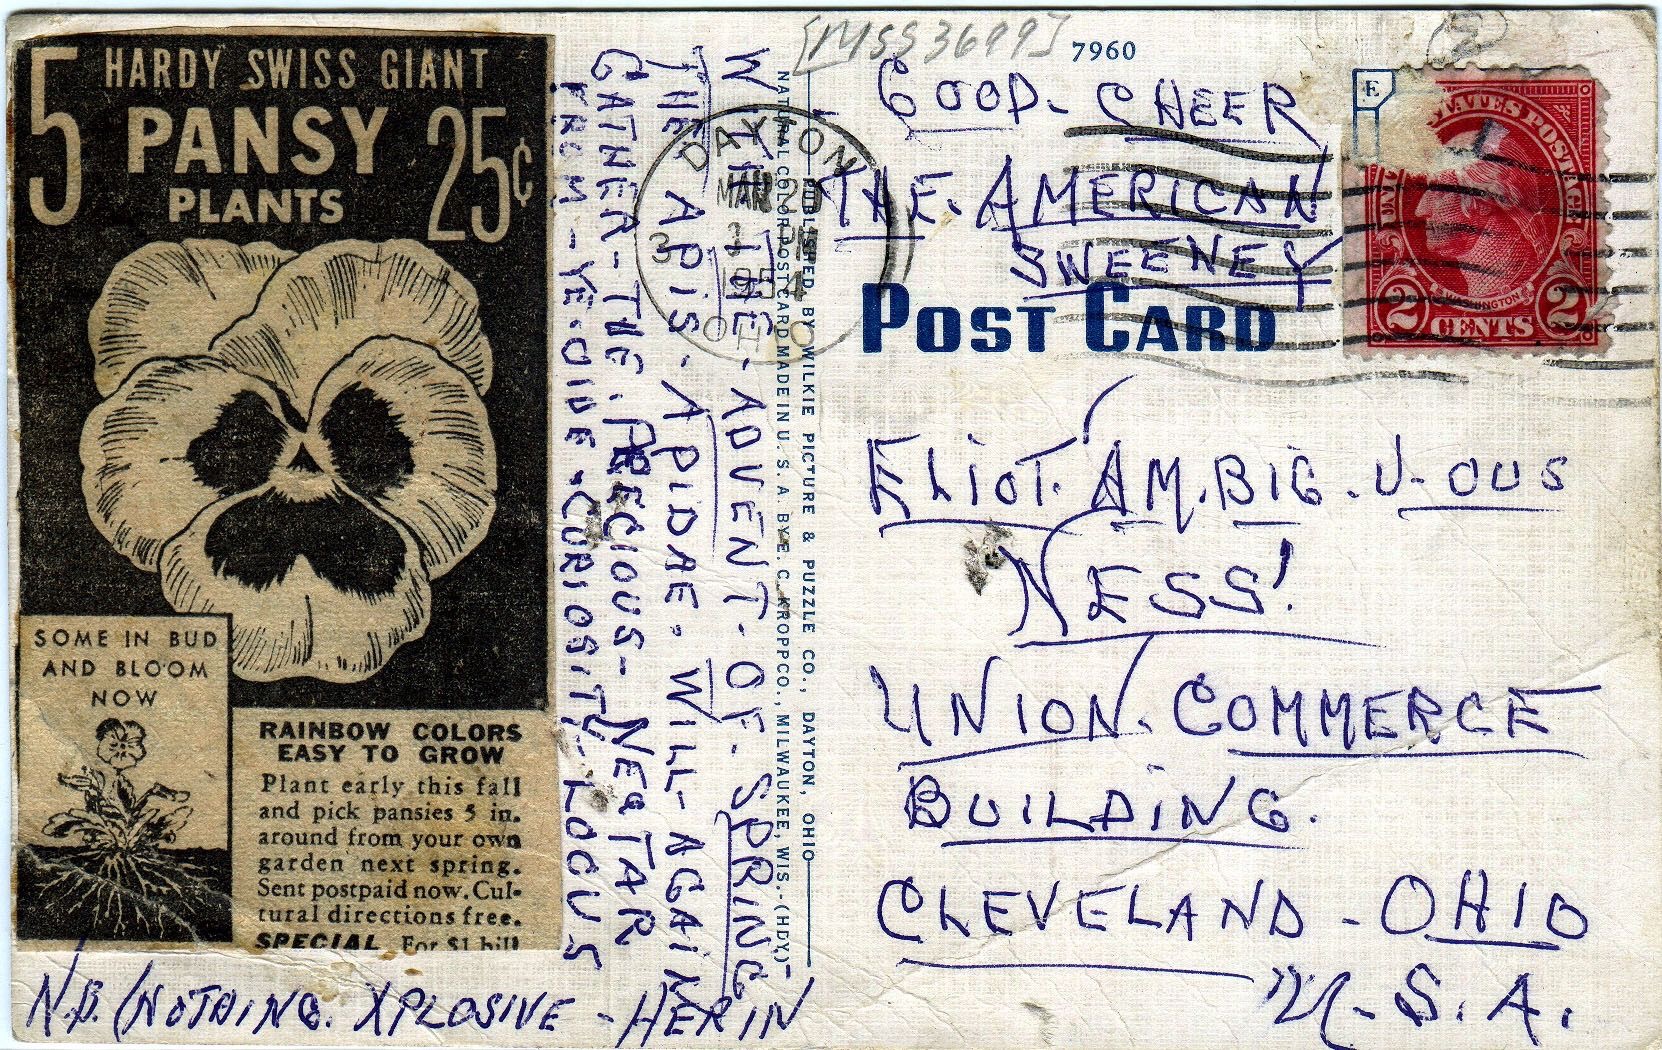 [MSS 3699]
7960
5 HARDY SWISS GIANT
PANSY
25¢
PLANTS
SOME IN BUD
AND BLOOM
NOW
RAINBOW COLORS
EASY TO GROW
Plant early this fall
and pick pansies 5 in.
around from your own
garden next spring.
Sent postpaid now. Cul-
tural directions free.
SPECIAL For $1 bill
WITH-THE-ADVENT-OF-SPRING
THE APIS-APIDAE. WILL-AGAIN
GATHER-THE. PRECIOUS-NECTAR
FROM-YE-OLDE-CURIOSITY-LOCUS
N.B. (NOTHING. XPLOSIVE-HEREIN
PUBLISHED BY WILKIE PICTURE & PUZZLE CO., DAYTON, OHIO
NATURAL COLOR POST CARD MADE IN U.S.A. BY E. C. KROPP CO., MILWAUKEE, WIS.-(HDY)
DAYTON
MAR 20
3
1954
OHIO
GOOD-CHEER
THE. AMERICAN
SWEENEY
POST CARD
E
STATES POSTAGE
WASHINGTON
2 CENTS 2
ELIOT. AM.BIG.U-OUS
NESS!
UNION. COMMERCE
BUILDING.
CLEVELAND-OHIO
U.S.A.